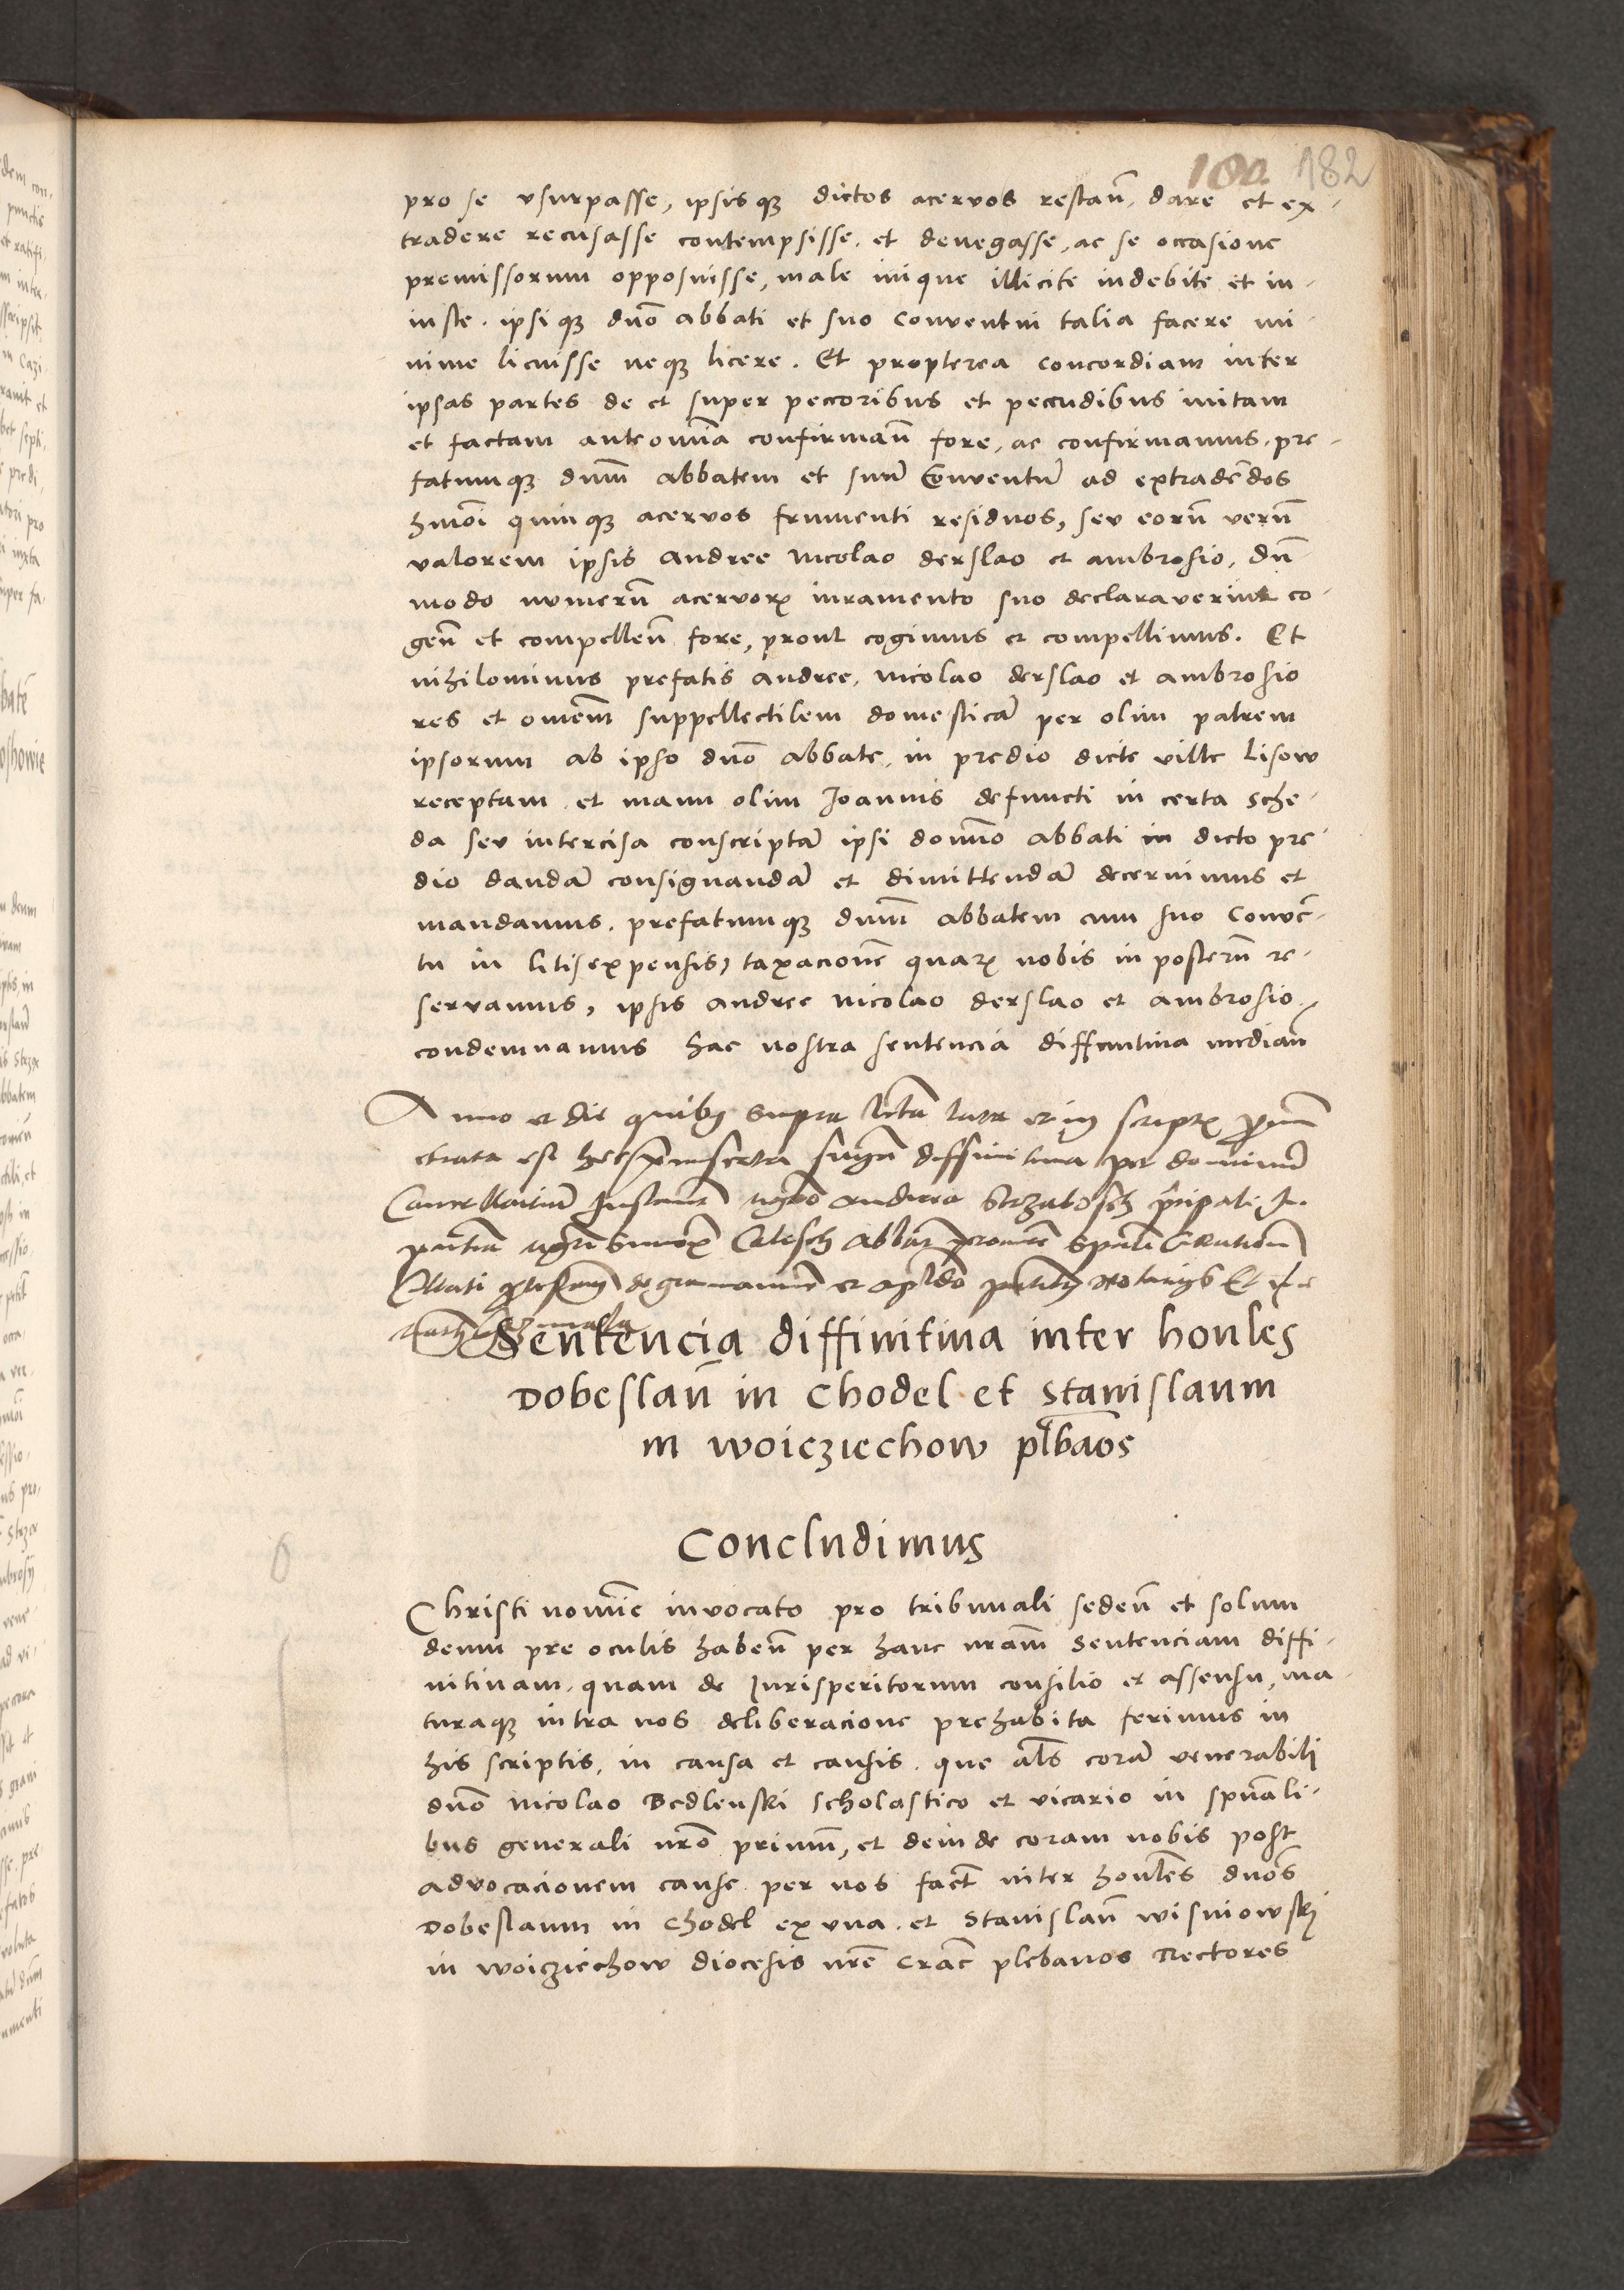 180 182
pro se vsurpasse, ipsisqꝫ dictos acervos restañ. dare et ex-
tradere recusasse contempsisse. et denegasse, ac se occasione
premissorum opposuisse, male inique illicite indebite et in-
iuste. ipsiqꝫ dño abbati et suo conventui talia facere mi-
nime licuisse neqꝫ licere. Et propterea concordiam inter
ipsas partes de et super peccoribus et peccudibus initam
et factam anteomĩa confirmañ fore, ac confirmamus. pre-
fatumqꝫ dnm̃ abbatem et suũ Conventũ ad extradẽdos
hmõi quinqꝫ acervos frumenti residuos, seu eorũ verũ
valorem ipsis Andree Nicolao derslao et ambrosio, dũ-
modo numerũ acervorꝝ iuramento suo declaraverint co-
geñ et compelleñ fore, prout cogimus et compellimus. Et
nihilominus prefatis Andree, Nicolao derslao et ambrosio
res et omem̃ suppellectilem domesticã per olim patrem
ipsorum ab ipso dño abbate, in predio dicte ville Lisow
receptam et manu olim Joannis defuncti in certa sche-
da seu intercisa conscriptã ipsi domĩo abbati in dicto pre-
dio dandã consignandã et dimittendã decernimus et
mandamus. prefatumqꝫ dnm̃ abbatem cum suo Convẽ-
tu in litisexpensis, taxacionẽ quarꝝ nobis in posterũ re-
servamus, ipsis Andree Nicolao derslao et Ambrosio
condemnamus hac nostra sentencia diffinitiua mediañ
Anno et die quibꝫ supra lecta lata et in scriptꝭ
est hec suprascripta diffinitiua per dominũ
Cancellariũ Andrea principali
Sentencia diffinitiua inter honles
Dobeslaũ in Chodel et Stanislaum
in woiczIechow plb̃aos
Concludimus
Christi nomĩe invocato pro tribunali sedeñ et solum
deum pre oculis habeñ per hanc nram̃ Sentenciam diffi-
nitiuam. quam de Jurisperitorum consilio et assensu, ma-
turaqꝫ intra nos deliberacione prehabita ferimus in
his scriptis, in causa et causis. que als̃ corã venerabili
dño Nicolao Bedlenski Scholastico et vicario in spuãli-
bus generali nr̃o primũ, et deinde coram nobis post
advocacionem cause per nos fact̃ inter honles̃ dnõs
Dobeslaum in Chodel ex vna. et Stanislaũ wisniowskj
in woiczIechow diocesis nrẽ Crac̃ plebanos Rectores